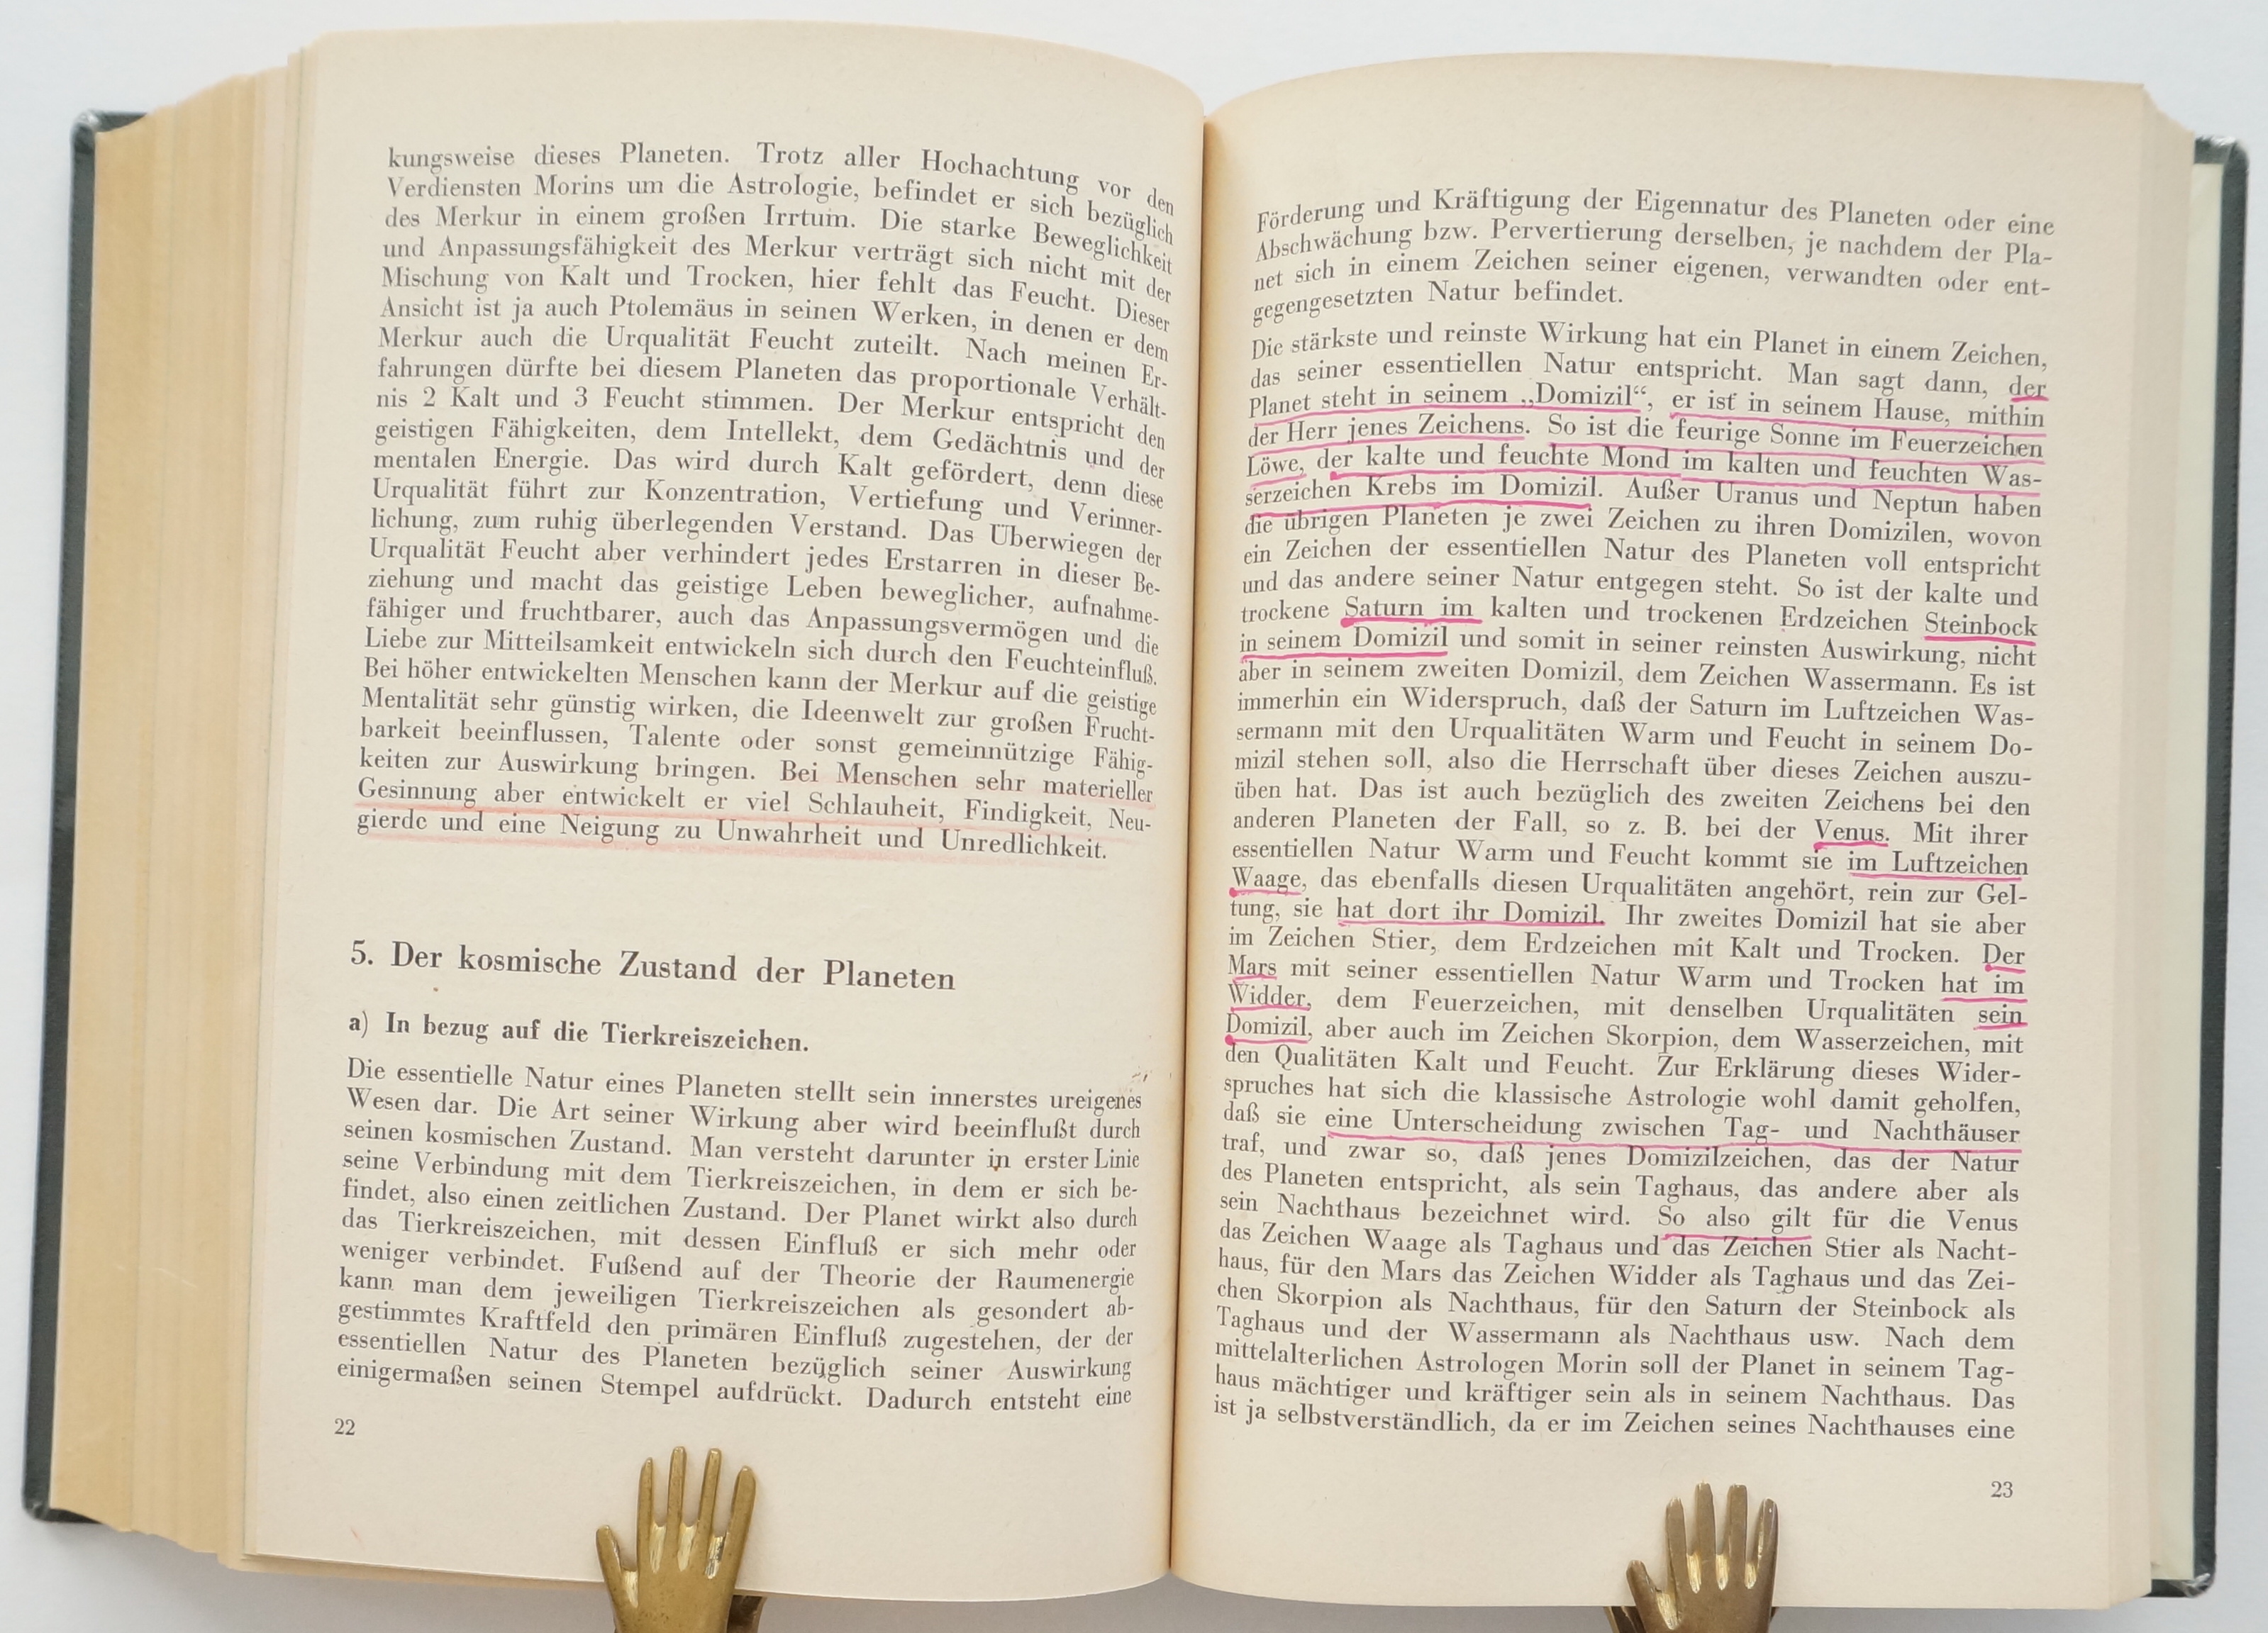 kungsweise dieses Planeten. Trotz aller Hochachtung vor den
Verdiensten Morins um die Astrologie, befindet er sich bezüglich
des Merkur in einem großen Irrtum. Die starke Beweglichkeit
und Anpassungsfähigkeit des Merkur verträgt sich nicht mit der
Mischung von Kalt und Trocken, hier fehlt das Feucht. Dieser
Ansicht ist ja auch Ptolemäus in seinen Werken, in denen er dem
Merkur auch die Urqualität Feucht zuteilt. Nach meinen Er-
fahrungen dürfte bei diesem Planeten das proportionale Verhält-
nis 2 Kalt und 3 Feucht stimmen. Der Merkur entspricht den
geistigen Fähigkeiten, dem Intellekt, dem Gedächtnis und der
mentalen Energie. Das wird durch Kalt gefördert, denn diese
Urqualität führt zur Konzentration, Vertiefung und Verinner-
lichung, zum ruhig überlegenden Verstand. Das Überwiegen der
Urqualität Feucht aber verhindert jedes Erstarren in dieser Be-
ziehung und macht das geistige Leben beweglicher, aufnahme-
fähiger und fruchtbarer, auch das Anpassungsvermögen und die
Liebe zur Mitteilsamkeit entwickeln sich durch den Feuchteinfluß.
Bei höher entwickelten Menschen kann der Merkur auf die geistige
Mentalität sehr günstig wirken, die Ideenwelt zur großen Frucht-
barkeit beeinflussen, Talente oder sonst gemeinnützige Fähig-
keiten zur Auswirkung bringen. Bei Menschen sehr materieller
Gesinnung aber entwickelt er viel Schlauheit, Findigkeit, Neu-
gierde und eine Neigung zu Unwahrheit und Unredlichkeit.
5. Der kosmische Zustand der Planeten
a) In bezug auf die Tierkreiszeichen.
Die essentielle Natur eines Planeten stellt sein innerstes ureigenes
Wesen dar. Die Art seiner Wirkung aber wird beeinflußt durch
seinen kosmischen Zustand. Man versteht darunter in erster Linie
seine Verbindung mit dem Tierkreiszeichen, in dem er sich be-
findet, also einen zeitlichen Zustand. Der Planet wirkt also durch
das Tierkreiszeichen, mit dessen Einfluß er sich mehr oder
weniger verbindet. Fußend auf der Theorie der Raumenergie
kann man dem jeweiligen Tierkreiszeichen als gesondert ab-
gestimmtes Kraftfeld den primären Einfluß zugestehen, der der
essentiellen Natur des Planeten bezüglich seiner Auswirkung
einigermaßen seinen Stempel aufdrückt. Dadurch entsteht eine
22
Förderung und Kräftigung der Eigennatur des Planeten oder eine
Abschwächung bzw. Pervertierung derselben, je nachdem der Pla-
net sich in einem Zeichen seiner eigenen, verwandten oder ent-
gegengesetzten Natur befindet.
Die stärkste und reinste Wirkung hat ein Planet in einem Zeichen,
das seiner essentiellen Natur entspricht. Man sagt dann, der
Planet steht in seinem „Domizil“, er ist in seinem Hause, mithin
der Herr jenes Zeichens. So ist die feurige Sonne im Feuerzeichen
Löwe, der kalte und feuchte Mond im kalten und feuchten Was-
serzeichen Krebs im Domizil. Außer Uranus und Neptun haben
die übrigen Planeten je zwei Zeichen zu ihren Domizilen, wovon
ein Zeichen der essentiellen Natur des Planeten voll entspricht
und das andere seiner Natur entgegen steht. So ist der kalte und
trockene Saturn im kalten und trockenen Erdzeichen Steinbock
in seinem Domizil und somit in seiner reinsten Auswirkung, nicht
aber in seinem zweiten Domizil, dem Zeichen Wassermann. Es ist
immerhin ein Widerspruch, daß der Saturn im Luftzeichen Was-
sermann mit den Urqualitäten Warm und Feucht in seinem Do-
mizil stehen soll, also die Herrschaft über dieses Zeichen auszu-
üben hat. Das ist auch bezüglich des zweiten Zeichens bei den
anderen Planeten der Fall, so z. B. bei der Venus. Mit ihrer
essentiellen Natur Warm und Feucht kommt sie im Luftzeichen
Waage, das ebenfalls diesen Urqualitäten angehört, rein zur Gel-
tung, sie hat dort ihr Domizil. Ihr zweites Domizil hat sie aber
im Zeichen Stier, dem Erdzeichen mit Kalt und Trocken. Der
Mars mit seiner essentiellen Natur Warm und Trocken hat im
Widder, dem Feuerzeichen, mit denselben Urqualitäten sein
Domizil, aber auch im Zeichen Skorpion, dem Wasserzeichen, mit
den Qualitäten Kalt und Feucht. Zur Erklärung dieses Wider-
spruches hat sich die klassische Astrologie wohl damit geholfen,
daß sie eine Unterscheidung zwischen Tag- und Nachthäuser
traf, und zwar so, daß jenes Domizilzeichen, das der Natur
des Planeten entspricht, als sein Taghaus, das andere aber als
sein Nachthaus bezeichnet wird. So also gilt für die Venus
das Zeichen Waage als Taghaus und das Zeichen Stier als Nacht-
haus, für den Mars das Zeichen Widder als Taghaus und das Zei-
chen Skorpion als Nachthaus, für den Saturn der Steinbock als
Taghaus und der Wassermann als Nachthaus usw. Nach dem
mittelalterlichen Astrologen Morin soll der Planet in seinem Tag-
haus mächtiger und kräftiger sein als in seinem Nachthaus. Das
ist ja selbstverständlich, da er im Zeichen seines Nachthauses eine
23